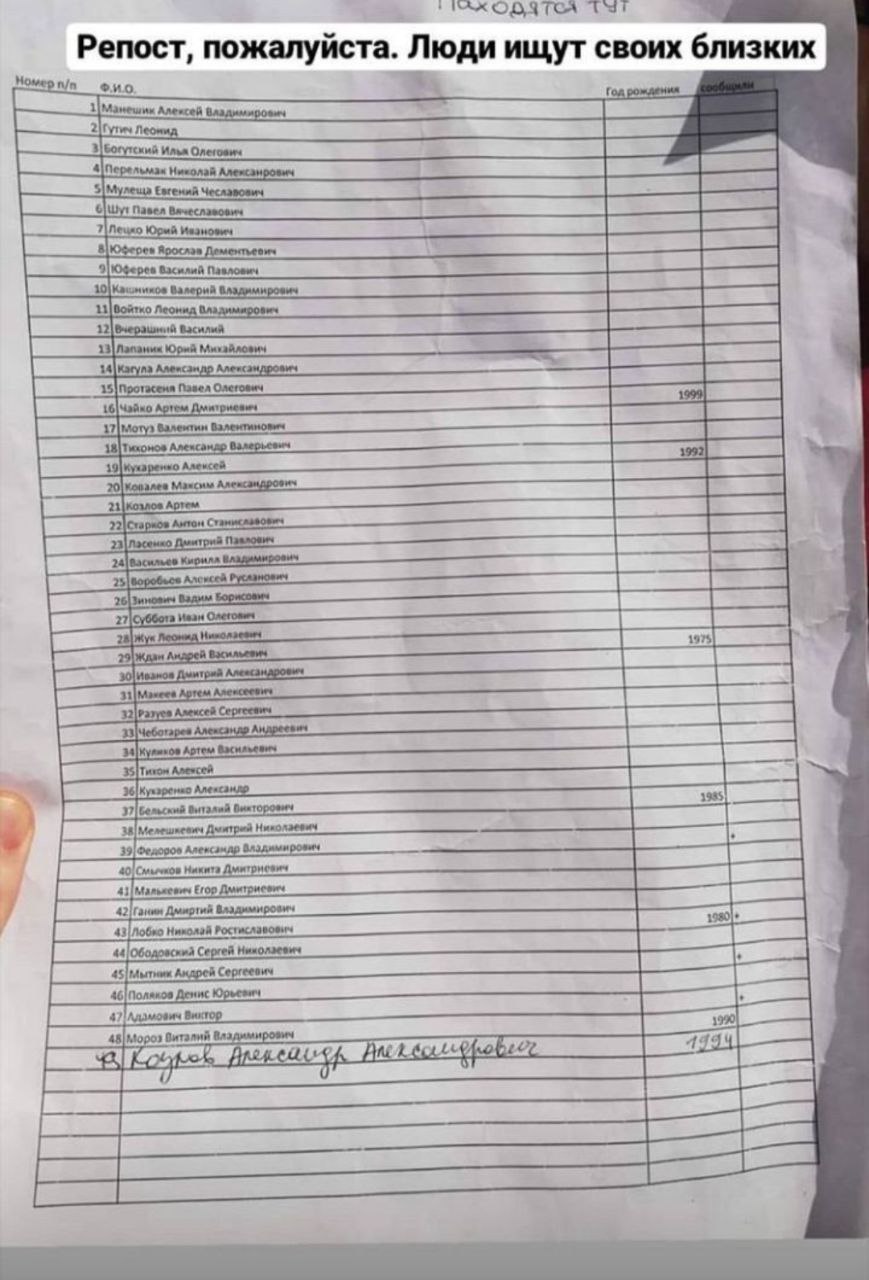 Находятся тут
Репост, пожалуйста. Люди ищут своих близких
Номер п/п Ф.И.О. Год рождения сообщили
1 Манешик Алексей Владимирович
2 Гутич Леонид
3 Богутский Илья Олегович
4 Перельмак Николай Алексанрович
5 Мулеща Евгений Чеславович
6 Шут Павел Вячеславович
7 Лецко Юрий Иванович
8 Юферев Ярослав Дементьевич
9 Юферев Василий Павлович
10 Кашников Валерий Владимирович
11 Войтко Леонид Владимирович
12 Вчерашний Василий
13 Лапаник Юрий Михайлович
14 Кагула Александр Александрович
15 Протасеня Павел Олегович
16 Чайко Артем Дмитриевич 1999
17 Мотуз Валентин Валентинович
18 Тихонов Александр Валерьевич
19 Кухаренко Алексей 1992
20 Ковалев Максим Александрович
21 Козлов Артем
22 Старков Антон Станиславович
23 Ласенко Дмитрий Павлович
24 Васильев Кирилл Владимирович
25 Воробьев Алексей Русланович
26 Зинович Вадим Борисович
27 Суббота Иван Олегович
28 Жук Леонид Николаевич 1975
29 Ждан Андрей Васильевич
30 Иванов Дмитрий Александрович
31 Макеев Артем Алексеевич
32 Разуев Алексей Сергеевич
33 Чеботарев Александр Андреевич
34 Куликов Артем Васильевич
35 Тихон Алексей
36 Кухаренко Александр
37 Бельский Виталий Викторович 1985
38 Мелешкевич Дмитрий Николаевич
39 Федоров Александр Владимирович +
40 Смычков Никита Дмитриевич
41 Малькевич Егор Дмитриевич
42 Ганин Дмиртий Владимирович
43 Лобко Николай Ростиславович 1980 +
44 Ободовский Сергей Николаевич
45 Мытник Андрей Сергеевич +
46 Поляков Денис Юрьевич
47 Адамович Виктор +
48 Мороз Виталий Владимирович 1990
Александр Александрович 1994